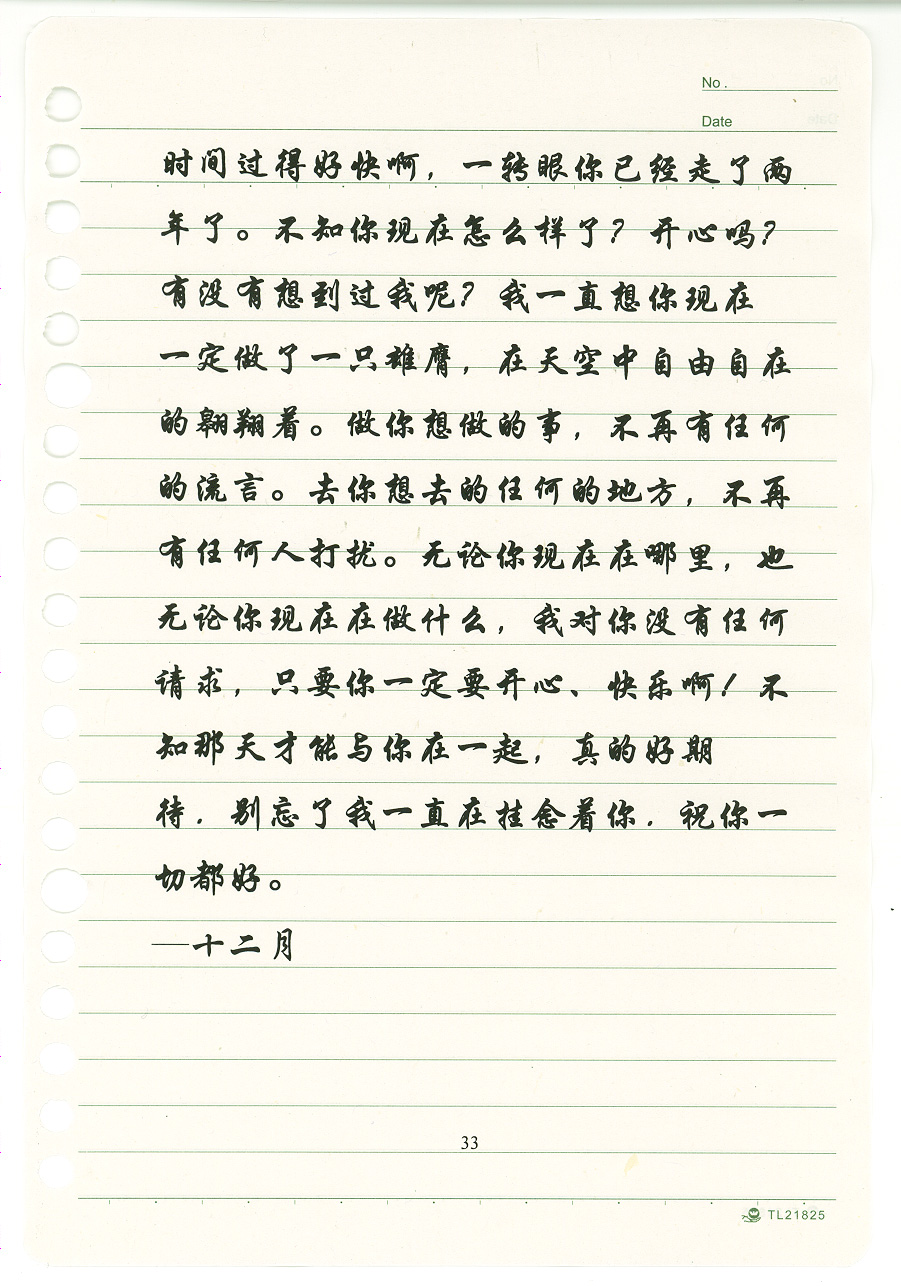 No .
Date
时间过得好快啊，一转眼你已经走了两
年了。不知你现在怎么样了？开心吗？
有没有想到过我呢？我一直想你现在
一定做了一只雄鹰，在天空中自由自在
的翱翔着。做你想做的事，不再有任何
的流言。去你想去的任何的地方，不再
有任何人打扰。无论你现在在哪里，也
无论你现在在做什么，我对你没有任何
请求，只要你一定要开心、快乐啊！不
知那天才能与你在一起，真的好期
待．别忘了我一直在挂念着你．祝你一
切都好。
—十二月
33
TL21825